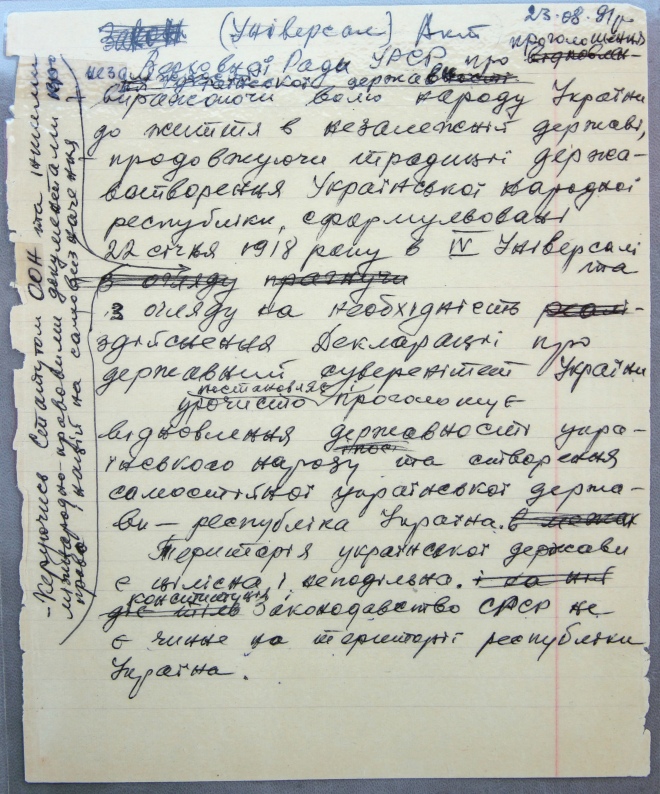 23.08.91р
Закон (Універсал) Акт
проголошення
Верховної Ради УРСР про відновлен-
неза української держави
виражаючи волю народу України
до життя в незалежній державі,
продовжуючи традиції держа-
вотворення Української народної
республіки, сформульовані
22 січня 1918 року в IV Універсалі
та
з огляду прагнучи
з огляду на необхідність реалі-
здійснення Декларації про
державний суверенітет України
постановляє
урочисто проголошує
відновлення державності укра-
їнського народу та створення
самостійної української держа-
ви – республіка Україна. в межах
Територія української держави
є цілісна і неподільна. і на ній
конституція
діє тільк Законодавство СРСР не
є чинне на території республіки
Україна.
- Керуючись Статутом ООН та іншими
міжнародно-правовими документами про
право націй на самовизначення